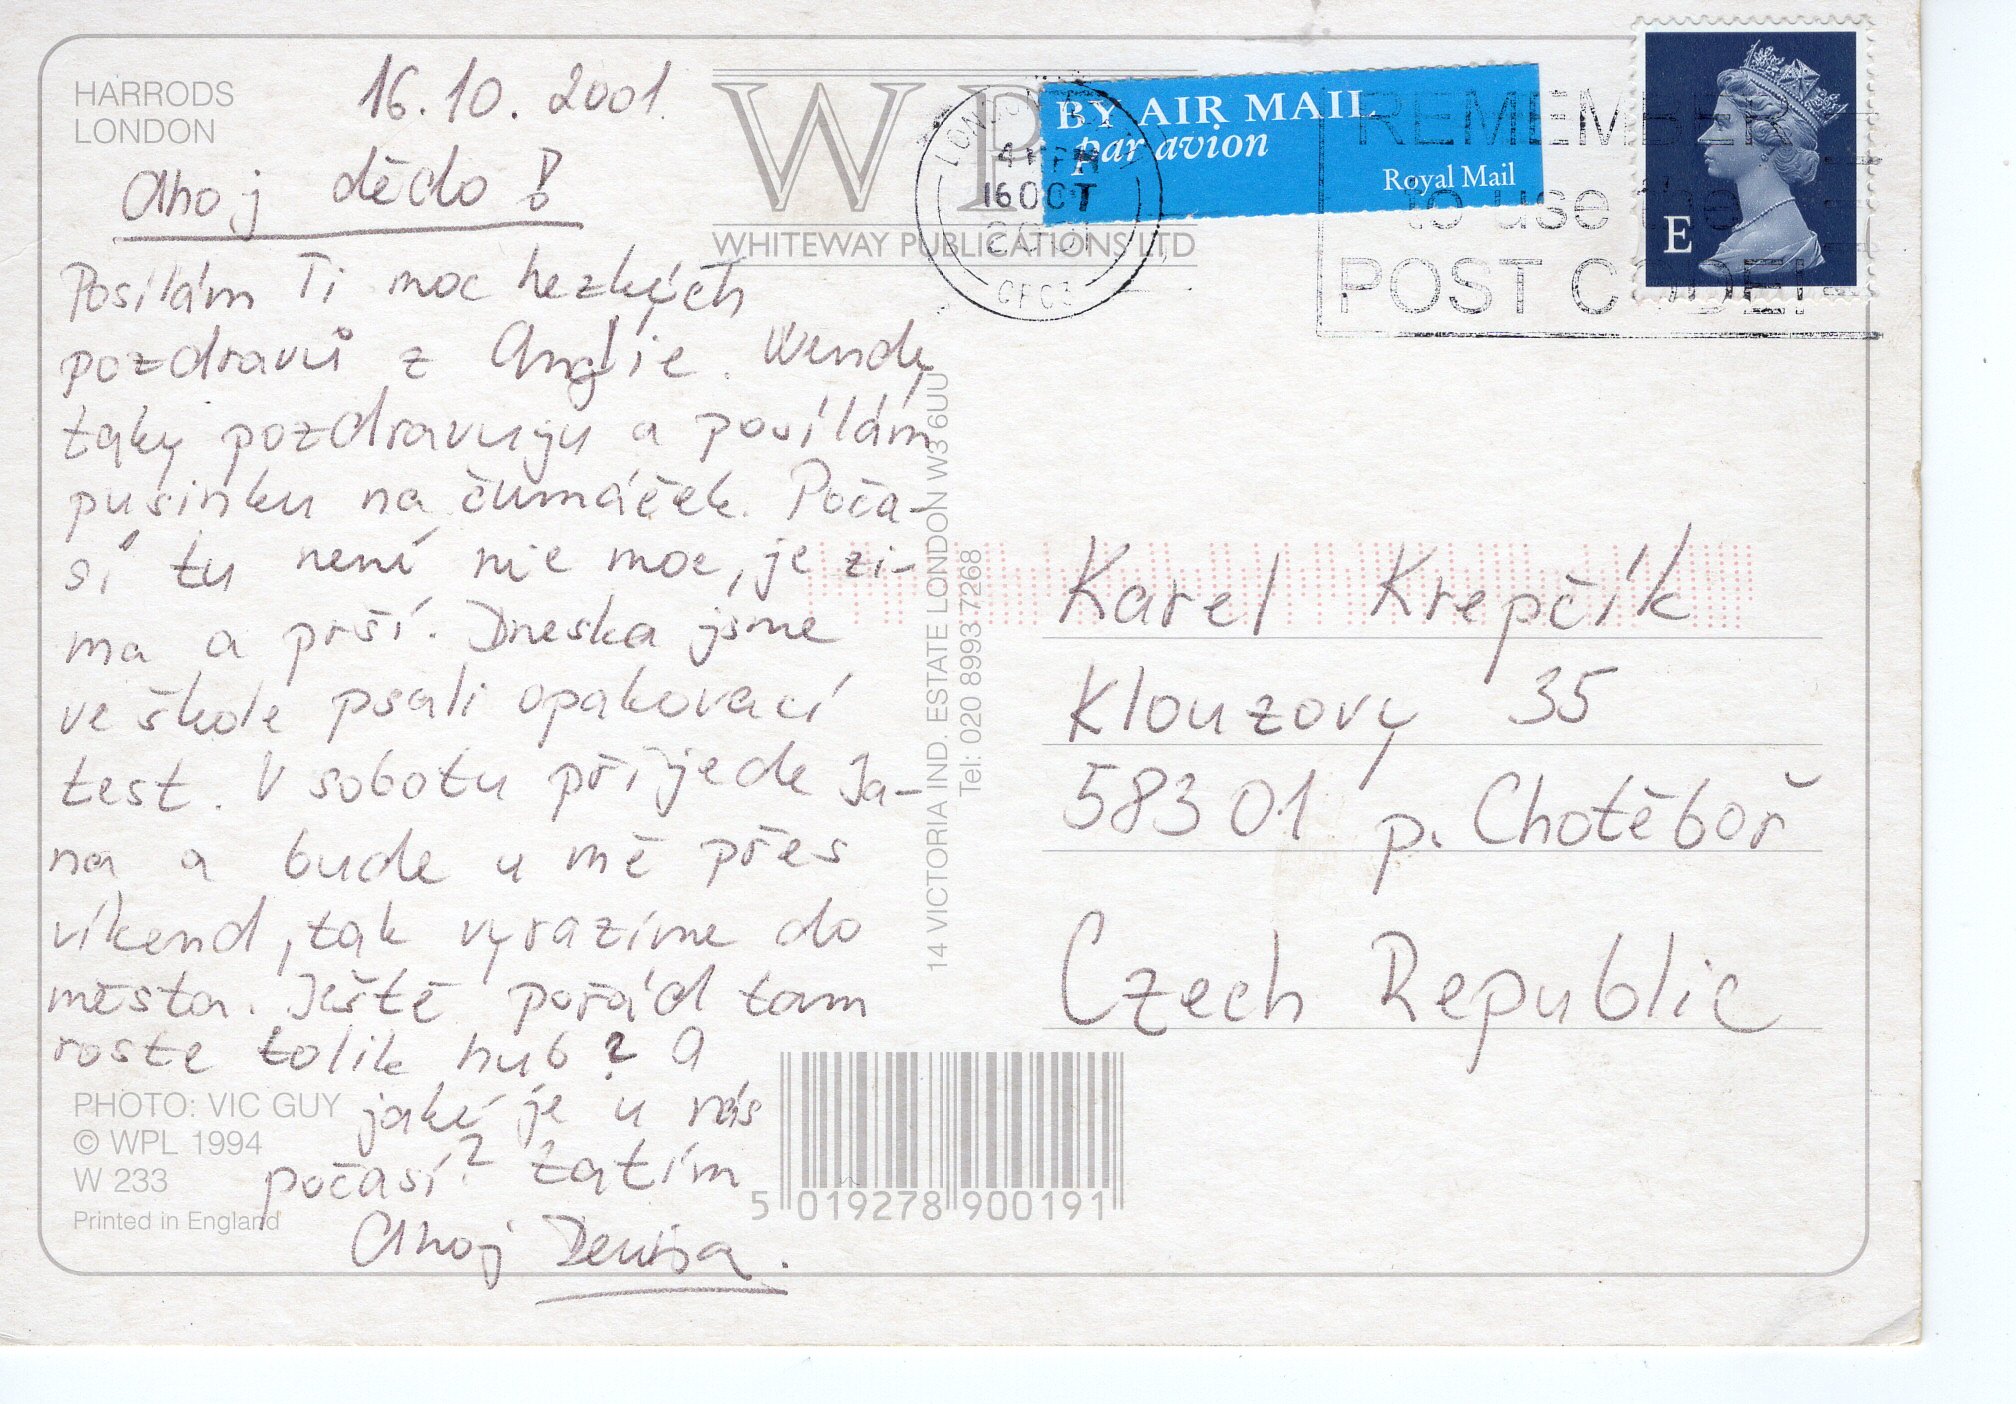 HARRODS
LONDON
16.10. 2001
Ahoj dědo!
Posílám Ti moc hezkých
pozdravů z Anglie. Wendy
taky pozdravuju a posílám
pusinku na čumáček. Poča-
sí tu není nic moc, je zi-
ma a prší. Dneska jsme
ve škole psali opakovací
test. V sobotu přijede Ja-
na a bude u mě přes
víkend, tak vyrazíme do
města. Ještě pořád tam
roste tolik hub? A
jaké je u nás
počasí? Zatím
Ahoj Denisa.
PHOTO: VIC GUY
© WPL 1994
W 233
Printed in England
WP
WHITEWAY PUBLICATIONS LTD
14 VICTORIA IND. ESTATE LONDON W3 6UU
Tel: 020 8993 7268
BY AIR MAIL
par avion
Royal Mail
LONDON
16 OCT
2001
REMEMBER
to use the
POST CODE!
E
Karel Krepčík
Klouzovy 35
583 01 p. Chotěboř
Czech Republic
5 019278 900191